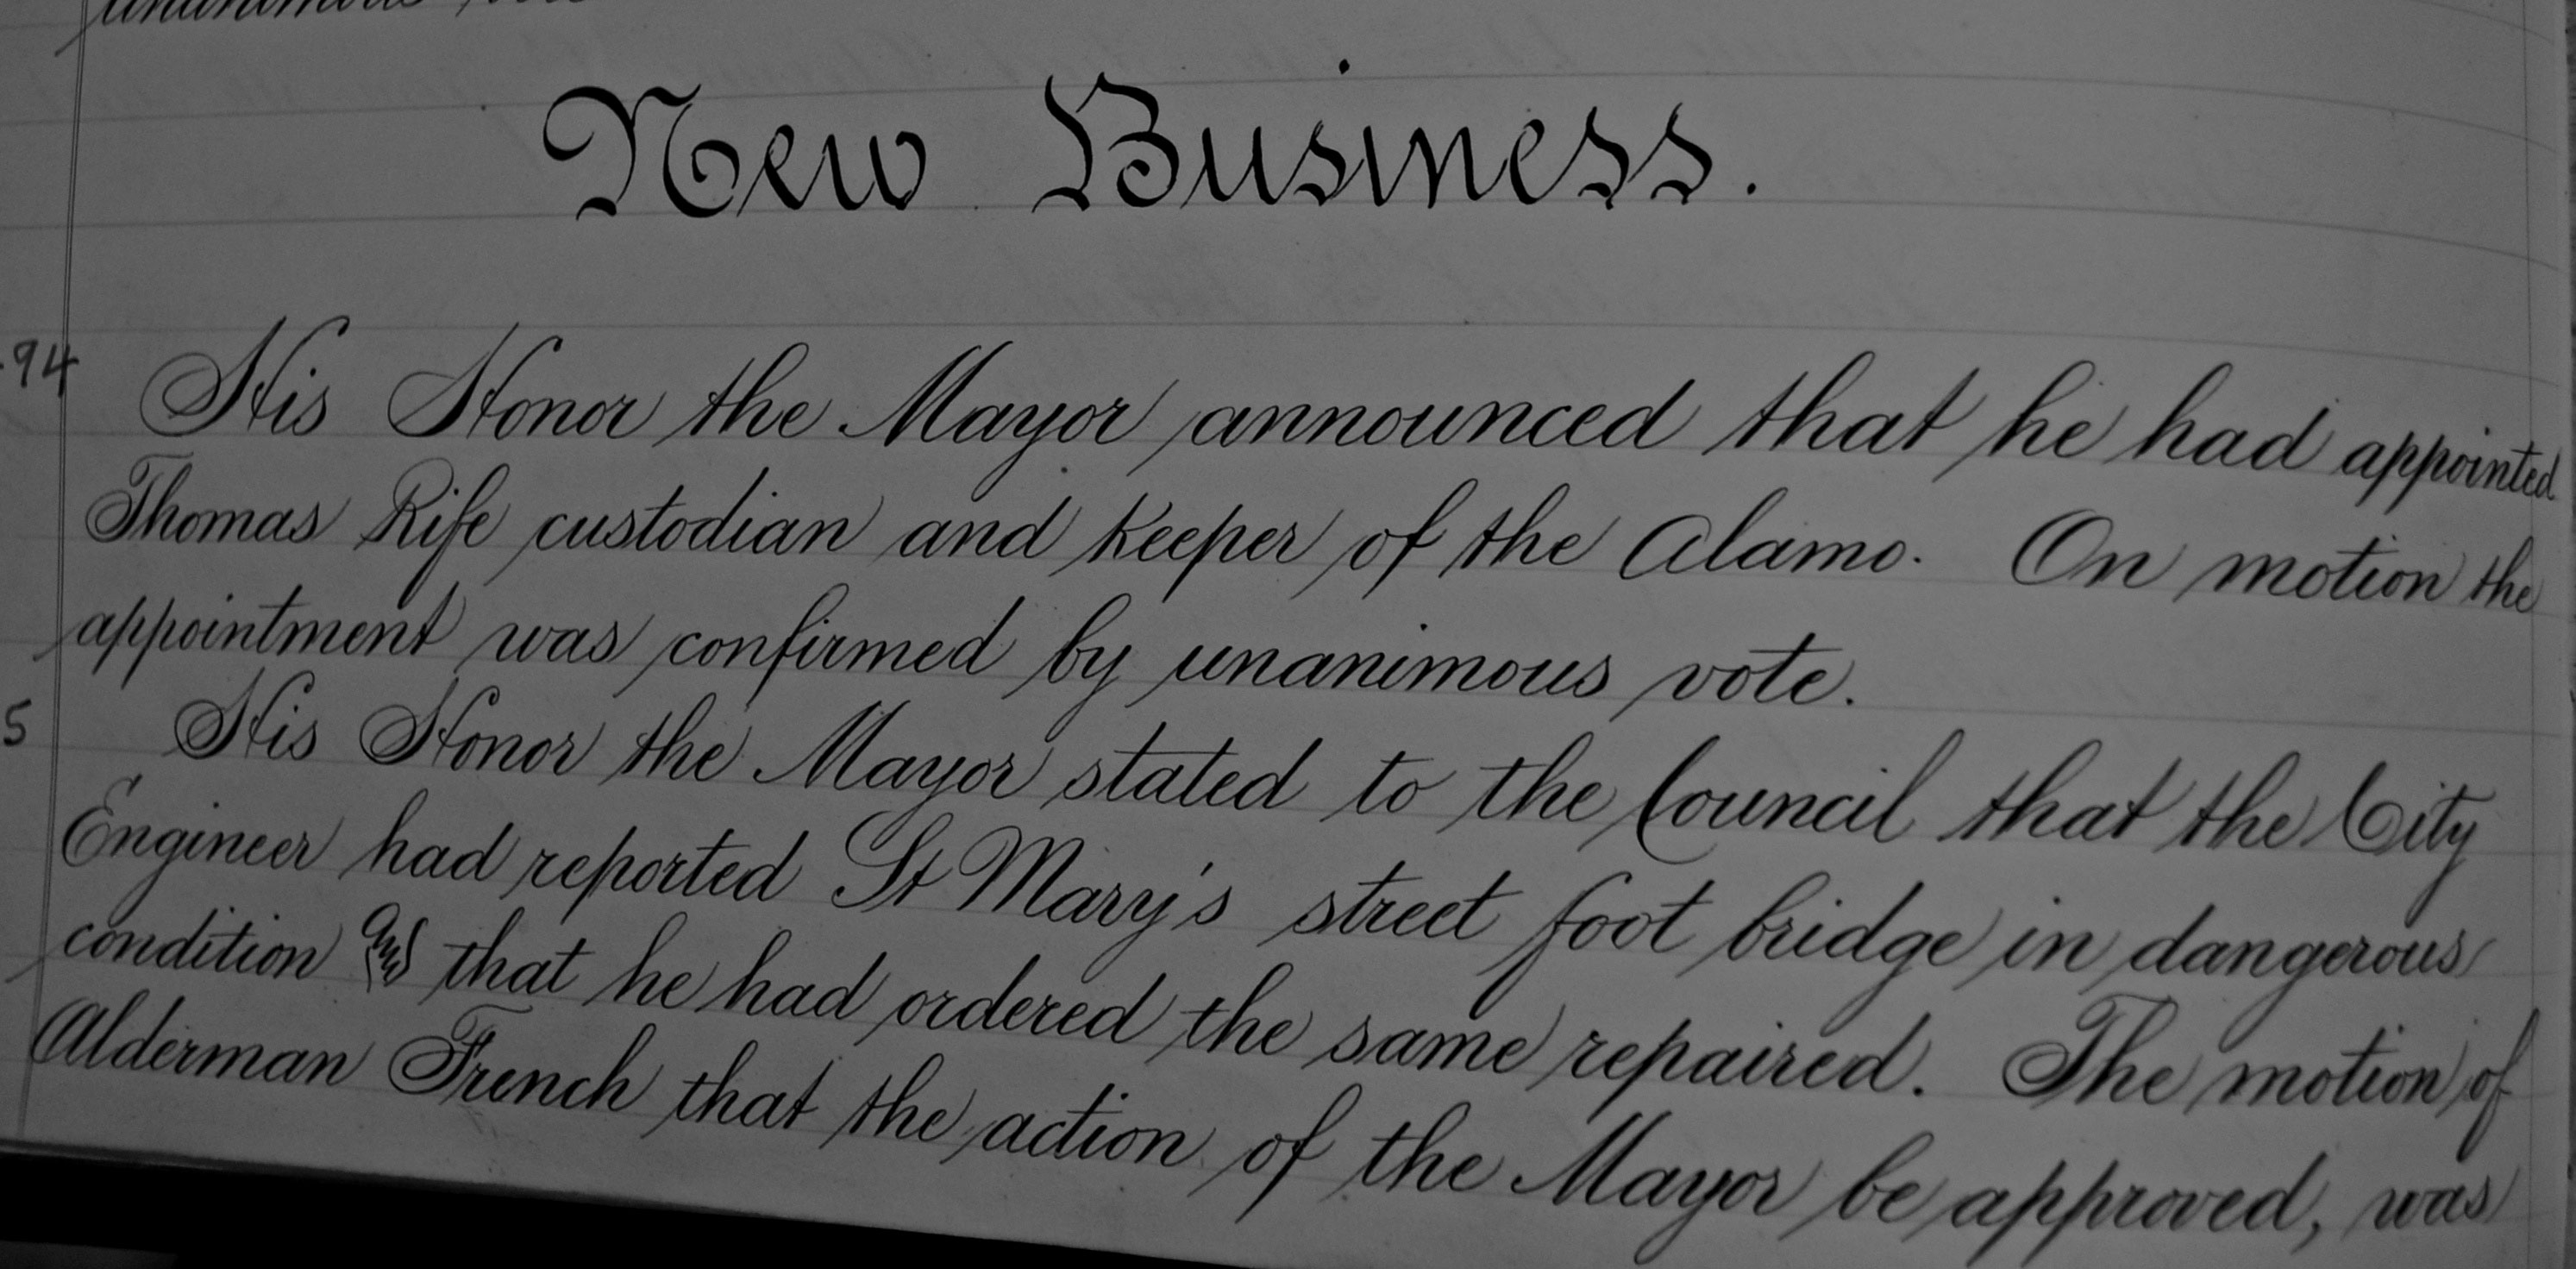 unanimous vote
New Business.
94 His Honor the Mayor announced that he had appointed
Thomas Rife custodian and Keeper of the Alamo. On motion the
appointment was confirmed by unanimous vote.
5 His Honor the Mayor stated to the Council that the City
Engineer had reported St Mary's street foot bridge in dangerous
condition and that he had ordered the same repaired. The motion of
Alderman French that the action of the Mayor be approved, was